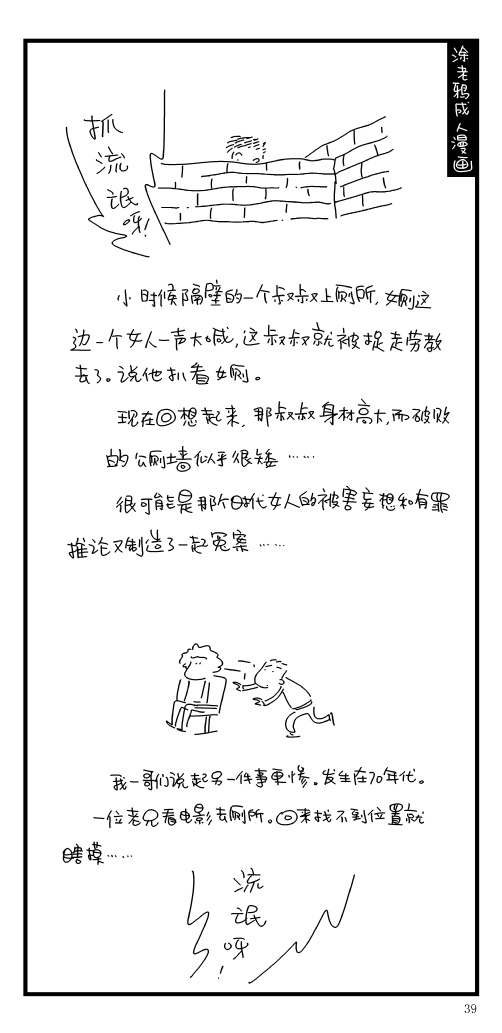 涂老鸦成人漫画
抓
流
氓
呀!
小时候隔壁的一个叔叔上厕所,女厕这
边一个女人一声大喊,这叔叔就被捉走劳教
去了。说他扒看女厕。
现在回想起来,那叔叔身材高大,而破败
的公厕墙似乎很矮……
很可能是那个时代女人的被害妄想和有罪
推论又制造了一起冤案……
我一哥们说起另一件事更惨。发生在70年代。
一位老兄看电影去厕所。回来找不到位置就
瞎摸……
流
氓
呀!
39